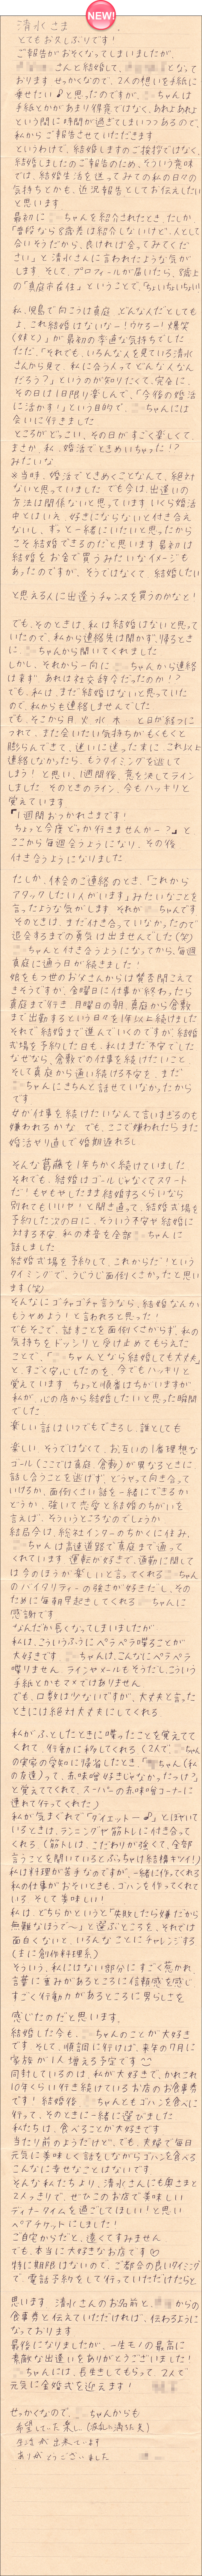 NEW!
清水さま
とてもお久しぶりです！
ご報告がおそくなってしまいましたが、
さんと結婚して、 となって
おります せっかくなので、2人の想いを手紙に
乗せたい♪と思ったのですが、 ちゃんは
手紙とかがあまり得意ではなく、あれよあれよ
という間に時間が過ぎてしまいつつあるので、
私からご報告させていただきます
というわけで、結婚しますのご挨拶ではなく、
結婚しましたのご報告のため、そういう意味
では、結婚生活を送ってみての私の日々の
気持ちとかも、近況報告としてお伝えしたい
と思います
最初に ちゃんを紹介されたとき、たしか
「普段なら8歳差は紹介しないけど、人として
合いそうだから、良ければ会ってみてくだ
さい」と清水さんに言われたような気が
します そして、プロフィールが届いたら、8歳上
の「真庭市在住」ということで、「ちょいちょいちょい!!
私、児島で向こうは真庭 どんな人だとしても
よ、これ結婚はないなー！ウケるー！爆笑
(妹と)」が最初の率直な気持ちでした
ただ、「それでも、いろんな人を見ている清水
さんから見て、私に合う人ってどんな人なん
だろう？」というのが知りたくて、完全に、
その日は1日限り楽しんで、「今後の婚活
に活かす！」という目的で、 ちゃんには
会いに行きました
ところがどっこい、その日がすごく楽しくて、
まさか、私、婚活でときめいちゃった!?
みたいな
※当時、婚活でときめくことなんて、絶対
ないと思っていました でも今は、出逢いの
方法は関係ないと思っています いくら婚活
中とはいえ、好きにならないと付き合え
ないし、ずっと一緒にいたいと思ったから
こそ結婚できるのだと思います 最初は
結婚をお金で買うみたいなイメージも
あったのですが、そうではなくて 結婚したい
と思える人に出逢うチャンスを買うのかなと！
でも、そのときは、私は結婚はないと思って
いたので、私から連絡先は聞かず、帰るとき
に ちゃんから聞いてくれました
しかし、それから一向に ちゃんから連絡
は来ず あれは社交辞令だったのか！？
でも、私は、まだ結婚はないと思っていた
ので、私からも連絡しませんでした
でも、そこから月 火 水 木 と日が経つに
つれて、また会いたい気持ちがもくもくと
膨らんできて、迷いに迷った末に、これ以上
連絡しなかったら、もうタイミングを逃して
しまう！と思い、1週間後、意を決してライン
しました そのときのライン、今もハッキリと
覚えています
『1週間おうかれさまです！
ちょっと今度どっか行きませんかー？』と
ここから毎週会うようになり、その後
付き合うようになりました
たしか、休会のご連絡のとき、「これから
アタックしたい人がいます」みたいなことを
言ったような気がします それが ちゃんです
そのときは、まだ付き合っていなかったので
退会するまでの勇気は出ませんでした(笑)
ちゃんと付き合うようになってから、毎週
真庭に通う日が続きました！
娘をもつ世のお父さんからは驚愕が聞こえて
きそうですが、金曜日に仕事が終わったら
真庭まで行き、月曜日の朝、真庭から倉敷
まで出勤するという日々を1年以上続けました
それで結婚まで進んでいくのですが、結婚
式場を予約した日も、私はまだ不安でした
なぜなら、倉敷での仕事を続けたいこと
そして真庭から通い続ける不安を、まだ
ちゃんにきちんと話せていなかったから
です
女が仕事を続けたいなんて言いすぎるのも
嫌われるかな でも、ここで嫌われたらまた
婚活やり直しで婚期逃れる！
そんな葛藤を1年ちかく続けていました
それでも、結婚はゴールじゃなくてスタート
だ！もやもやしたまま結婚するくらいなら
別れてもいいや！と開き直って、結婚式場を
予約した次の日に、そういう不安や結婚に
対する不安、私の本音を全部 ちゃんに
話しました
結婚式場を予約して、これからだ！という
タイミングで、うじうじ面倒くさかったと思い
ます(笑)
そんなにゴチャゴチャ言うなら、結婚なんか
もうやめよう！と言われると思った！
でもそこで、話すことを面倒くさがらず、私の
気持ちをドッシリと受け止めてもらえた
ことで、「 ちゃんとなら結婚しても大丈夫」
と、すごく安心したのを、今でもハッキリと
覚えています ちょっと順番はちがいますが、
私が、心の底から結婚したいと思った瞬間
でした
楽しい話はいつでもできるし、誰とでも
楽しい そうではなくて、お互いの1番理想な
ゴール(ここでは真庭、倉敷)が異なるときに
話し合うことを逃げず、どうやって向き合って
いけるか、面倒くさい話を一緒にできるか
どうか、強いて恋愛と結婚のちがいを
言えば、そういうところなのでしょうか
結局今は、総社インターのちかくに住み、
ちゃんは高速道路で真庭まで通って
くれています 運転が好きで、通勤に関して
は今のほうが楽しいと言ってくれる ちゃん
のバイタリティーの強さが好きだし、その
ために毎朝早起きしてくれる ちゃんに
感謝です
なんだか長くなってしまいましたが
私は、こういうふうにペラペラ喋ることが
大好きです ちゃんは、こんなにペラペラ
喋りません ラインやメールもそうだし、こういう
手紙とかもマメではありません
でも、口数は少ないですが、大丈夫と言った
ときには絶対大丈夫にしてくれる
私がふとしたときに喋ったことを覚えてて
くれて、行動に移してくれる(2人で、 ちゃん
の実家の愛知に帰省したとき、「 ちゃん(私
の友達)って、赤味噌好きじゃなかったっけ？」
と覚えててくれて、スーパーの赤味噌コーナーに
連れて行ってくれた)
私が気まぐれで「ダイエットー♪」とほやいて
いるときは、ランニングや筋トレに付き合って
くれる(筋トレは、こだわりが強くて、全部
言うことを聞いているとぶっちゃけ結構キツイ!)
私は料理が苦手なのですが、一緒に作ってくれる
私の仕事がおそいときも、ゴハンを作ってくれて
いる そして美味しい！
私は、どちらかというと「失敗したら嫌だから
無難なほうで〜」と選ぶところを、それでは
面白くないと、いろんなことにチャレンジする
(まじに創作料理系)
そういう、私にはない部分にすごく惹かれ、
言葉に重みがあるところに信頼感を感じ、
すごく行動力があるところに男らしさを
感じたのだと思います。
結婚した今も、 ちゃんのことが大好き
です そして、順調に行けば、来年の7月に
家族が1人増える予定です
同封しているのは、私が大好きで、かれこれ
10年くらい行き続けているお店のお食事券
です！結婚後、 ちゃんともゴハンを食べに
行って、そのときに一緒に選びました
私たちは、食べることが大好きです
当たり前のようだけど、でも、夫婦で毎日
元気に美味しく話をしながらゴハンを食べる
こんなに幸せなことはないです
そんな私たちより、清水さんにも奥さまと
2人っきりで、ぜひこのお店で美味しい
ディナータイムを過ごしてほしい！と思い
ペアチケットにしました！
ご自宅からだと、遠くてすみません
でも、本当に大好きなお店です♡
特に期限はないので、ご都合の良いタイミング
で、電話予約をして行っていただけたらと
思います 清水さんのお名前と、 からの
食事券と伝えていただければ、伝わるように
なっております
最後になりましたが、一生モノの最高に
素敵な出逢いをありがとうございました！
ちゃんには、長生きしてもらって、2人で
元気に金婚式を迎えます！
せっかくなので、 ちゃんからも
希望していた楽しい(波乱に満ちた笑)
生活が出来ています
ありがとうございました